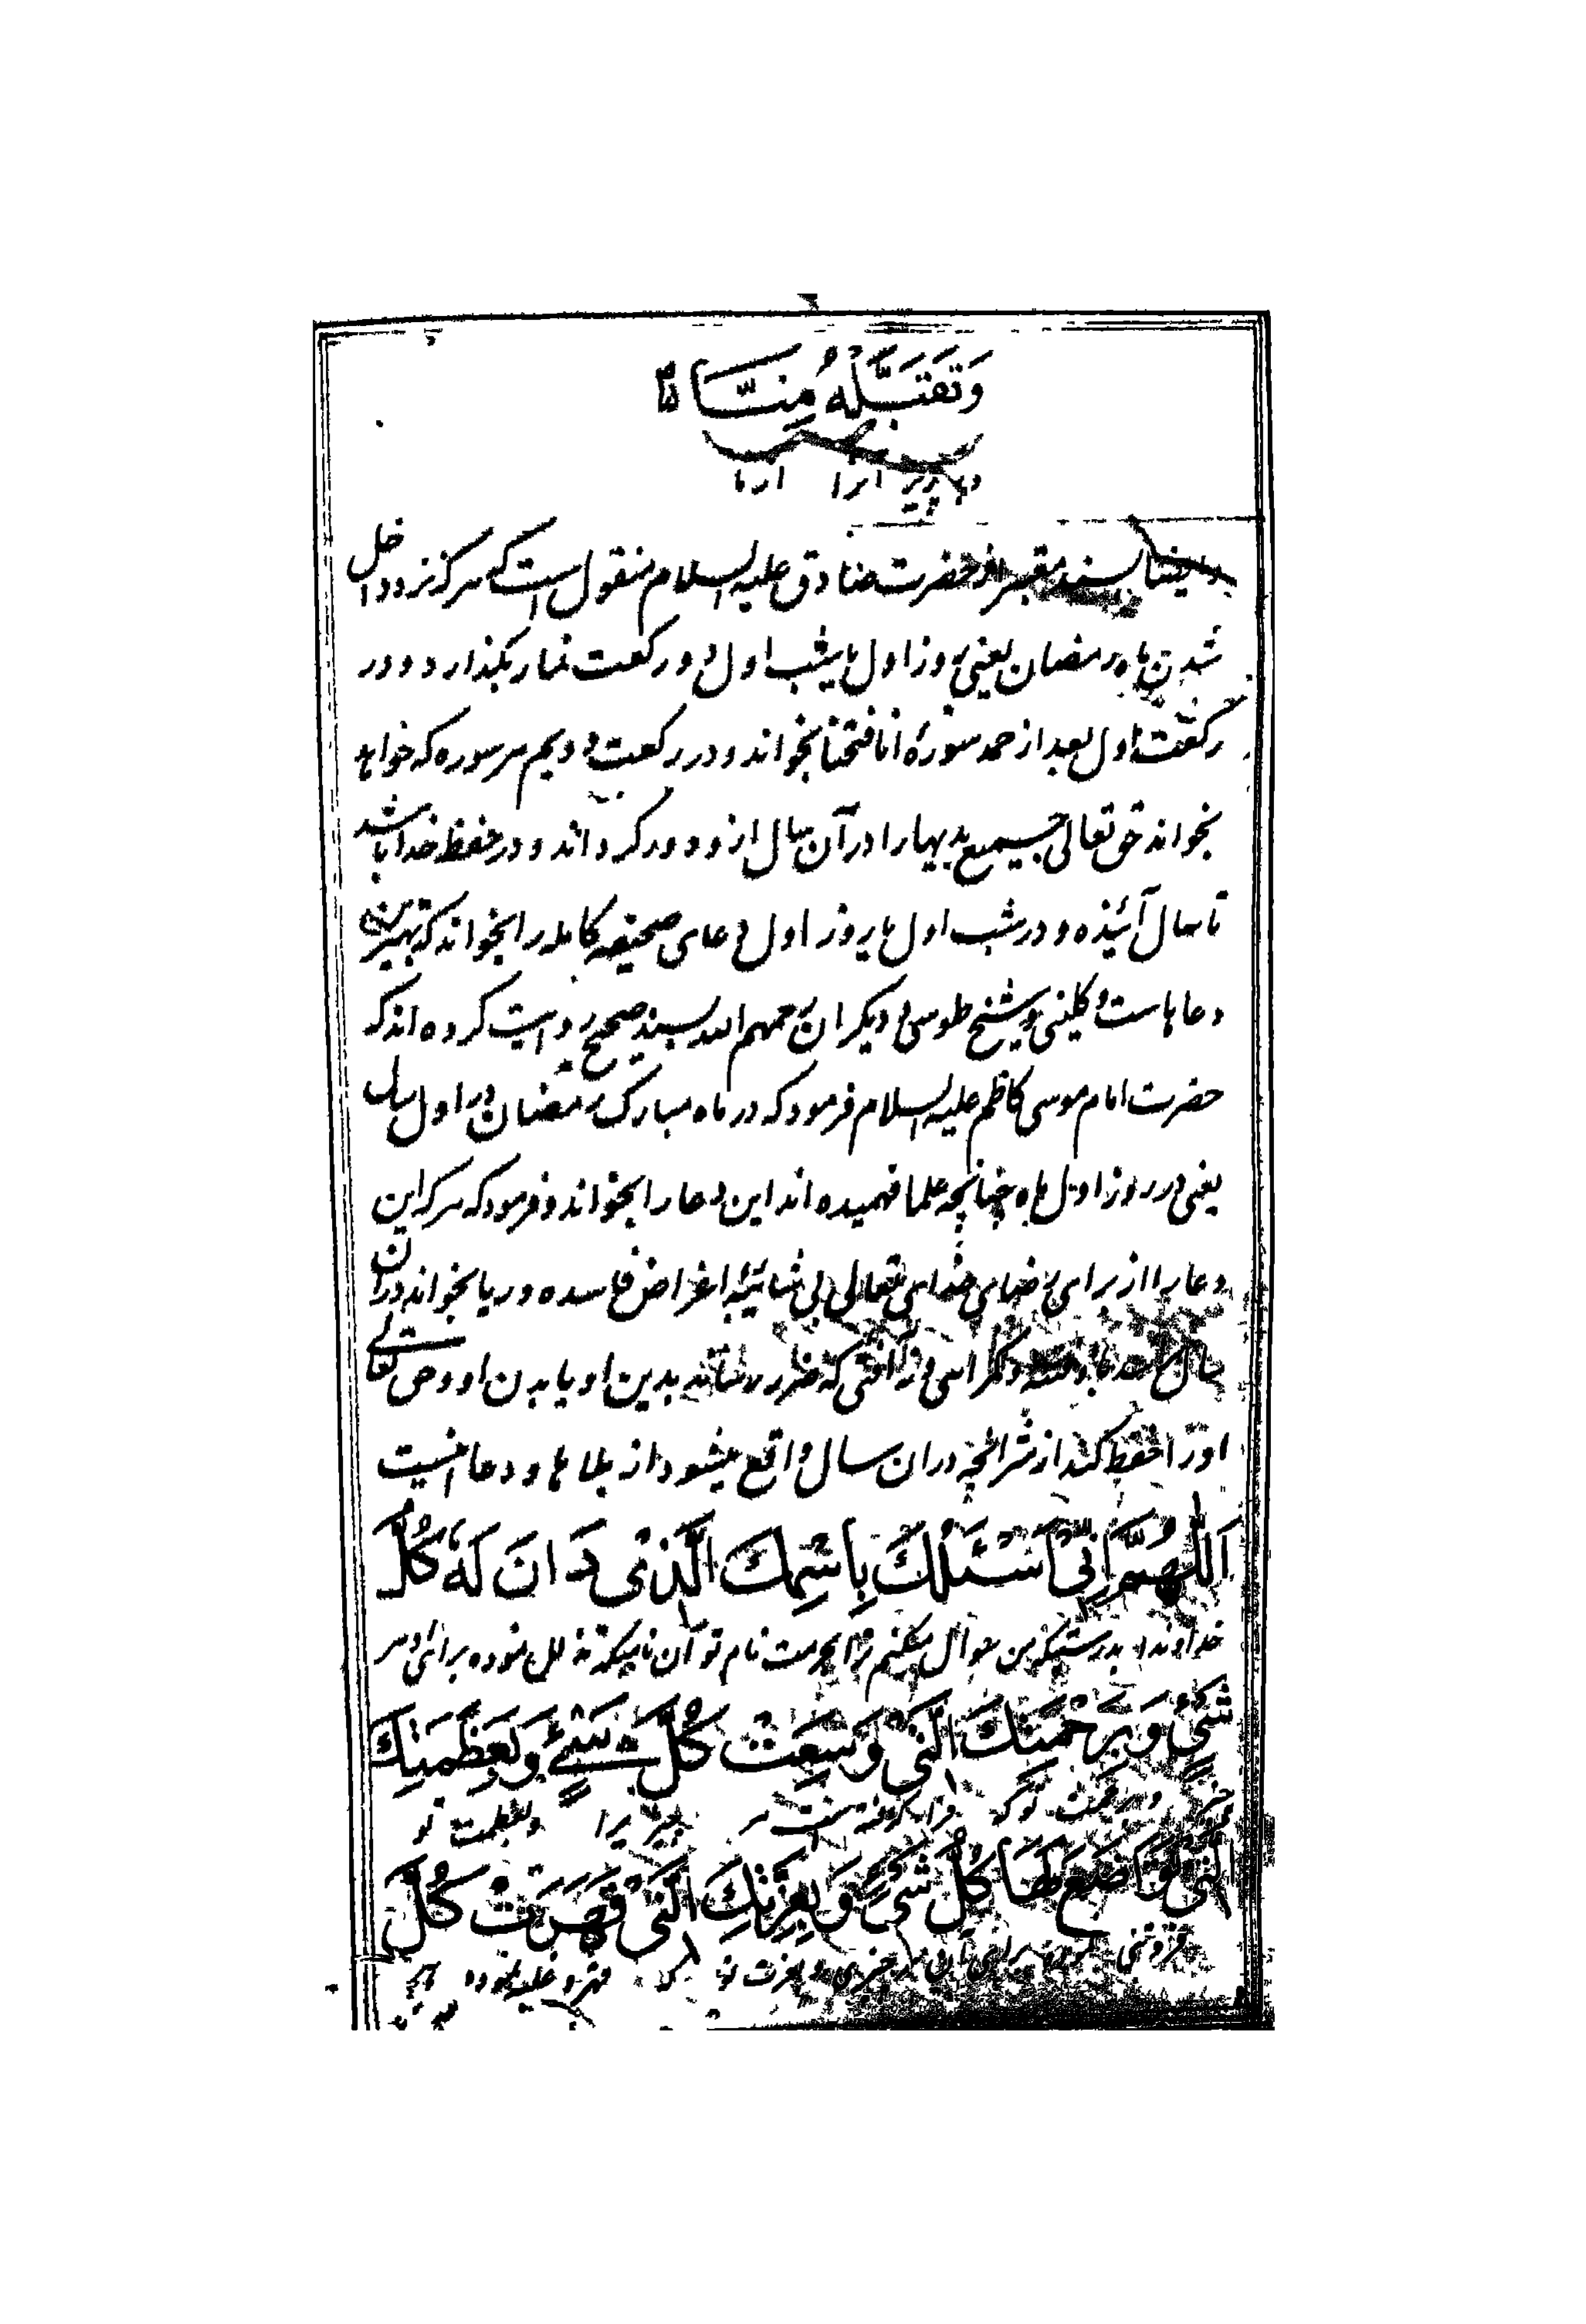 وَتَقَبَّلَهُ مِنَّا
ازما
وایضا بسند معتبر از حضرت صادق علیه السلام منقول است که هر که نزد داخل
شدن ماه رمضان یعنی روز اول یا شب اول دو رکعت نماز بگذارد و در
رکعت اول بعد از حمد سورۀ انا فتحنا بخواند و در رکعت دویم هر سوره که خواهد
بخواند حق تعالی جمیع بدیها را در آن سال از و دور گرداند و در حفظ خدا باشد
تا سال آئنده و در شب اول یا روز اول دعای صحیفه کامله را بخواند که بهترین
دعاهاست و کلینی و شیخ طوسی و دیگران رحمهم الله بسند صحیح روایت کرده اند که
حضرت امام موسی کاظم علیه السلام فرمود که در ماه مبارک رمضان در اول سال
یعنی در روز اول ماه چنانچه علما فهمیده اند این دعا را بخواند و فرمود که هر که این
دعا را از برای رضای خدای تعالی بی شائبۀ اغراض فاسده و ریا بخواند در آن
سال و گمراهی و آفتی که ضرر رساند بدین او یا بدن او و حق تعالی
او را حفظ کند از شر آنچه در ان سال واقع میشود از بلاها و دعا اینست
اَللّٰهُمَّ اِنِّی اَسْئَلُكَ بِاسْمِكَ الَّذِی دَانَ لَهُ كُلُّ
خداوندا بدرستیکه من سوال میکنم ترا بحرمت نام تو آن نامیکه تذلل نموده برای او هر
شَیْءٍ وَ بِرَحْمَتِكَ الَّتِی وَسِعَتْ كُلَّ شَیْءٍ وَ بِعَظَمَتِكَ
چیز و برحمت تو که فرا گرفته است هر چیز را و بعظمت تو
الَّتِی تَوَاضَعَ لَهَا كُلُّ شَیْءٍ وَ بِعِزَّتِكَ الَّتِی قَهَرَتْ كُلَّ
فروتنی نموده برای آن هر چیزی و بعزت تو که قهر و غلبه نموده